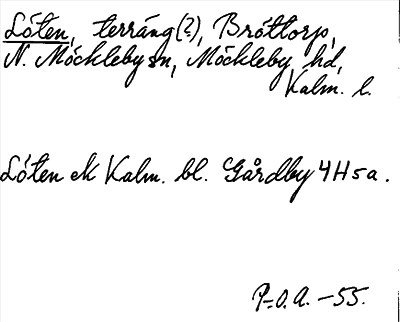 Lóten, terräng(?), Bróttorp,
N. Möckleby sn, Möckleby hd,
Kalm. l.
Lóten ek Kalm. bl. Gårdby 4H5a.
P-O.A. -55.